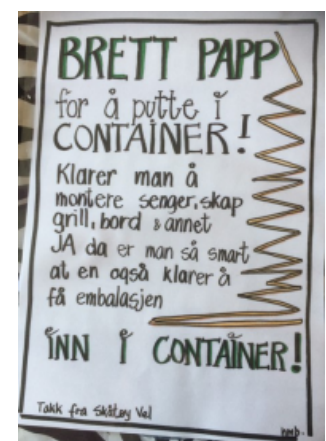 BRETT PAPP
for å putte i
CONTAINER!
Klarer man å
montere senger, skap
grill, bord & annet
JA da er man så smart
at en også klarer å
få embalasjen
INN I CONTAINER!
Takk fra Skåtøy Vel